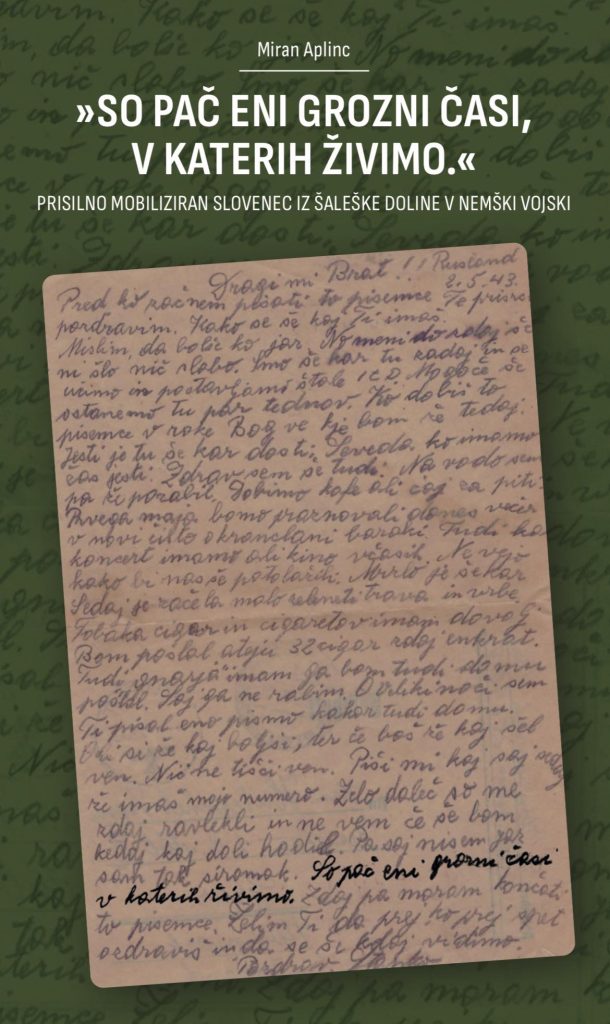 Miran Aplinc
»SO PAČ ENI GROZNI ČASI,
V KATERIH ŽIVIMO.«
PRISILNO MOBILIZIRAN SLOVENEC IZ ŠALEŠKE DOLINE V NEMŠKI VOJSKI
Dragi mi Brat!! Rusland
2.5.43.
Pred ko začnem pisati to pisemce Te prisrč
pozdravim. Kako se še kaj Ti imaš.
Mislim, da bolić ko jaz. No meni do zdaj še
ni šlo nič slabo. Smo še kar tu zadaj in se
učimo in postavljamo štale Mogoče še
ostanemo tu par tednov. Ko dobiš to
pisemce v roke Bog ve kje bom že tedaj
Jesti je tu še kar dosti. Seveda ko imamo
čas jesti. Zdrav sem še tudi. Na vodo sem
pa že pozabil. Dobimo kafe ali čaj za piti.
Prvega maja bomo praznovali danes večir
v novi čisto okranclani baraki. Tudi
koncert imamo ali kino včasih. Ne vejo
kako bi nas še potolažili. Mrzlo je še kar
Sedaj je začela malo zeleneti trava in vrbe
Tobaka cigar in cigaretov imam dovolj
Bom poslal ateju 32 cigar zdaj enkrat.
Tudi gnarja imam ga bom tudi domu
poslal. Saj ga ne rabim. O velikinoči sem
Ti pisal eno pismo kakor tudi domu.
si že kaj boljši, ter če boš že kaj šel
ven. Nič ne tišči ven. Piši mi kaj saj sedaj
že imaš mojo numero. Zelo daleč so me
zdaj zavlekli in ne vem če še bom
kedaj kaj doli hodil. Pa saj nisem jaz
sam tak siromak. So pač eni grozni časi
v katerih živimo. Zdaj pa moram končati
to pisemce. Želim Ti da prej ko prej spet
ozdraviš in da se še kdaj vidimo.
Pozdrav Stanko